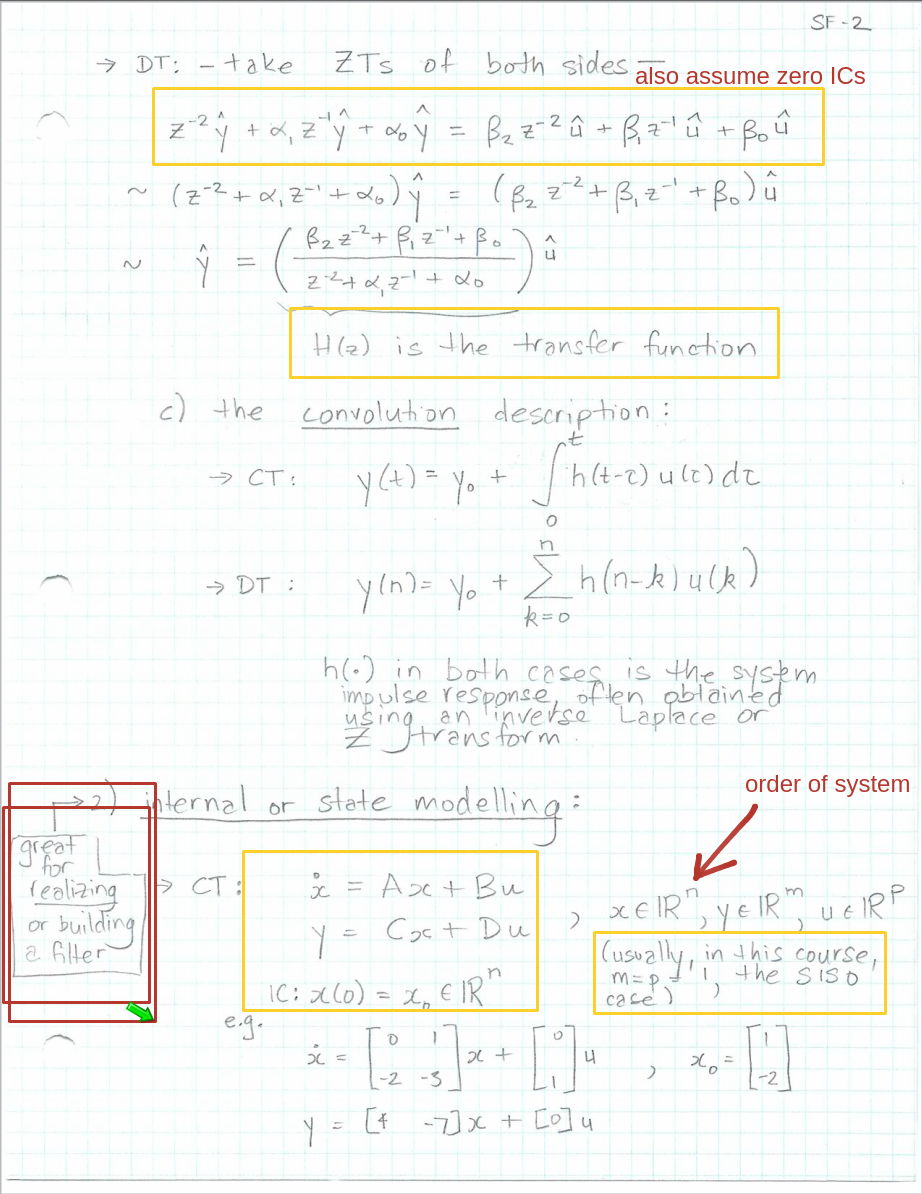 SF-2
→ DT: - take ZTs of both sides -
also assume zero ICs
z⁻²ŷ + α₁z⁻¹ŷ + α₀ŷ = β₂z⁻²û + β₁z⁻¹û + β₀û
~ (z⁻² + α₁z⁻¹ + α₀)ŷ = (β₂z⁻² + β₁z⁻¹ + β₀)û
~ ŷ = ( (β₂z⁻² + β₁z⁻¹ + β₀) / (z⁻² + α₁z⁻¹ + α₀) ) û
H(z) is the transfer function
c) the convolution description:
→ CT: y(t) = y₀ + ∫₀ᵗ h(t-τ) u(τ) dτ
→ DT: y(n) = y₀ + Σ_{k=0}^{n} h(n-k) u(k)
h(·) in both cases is the system
impulse response, often obtained
using an inverse Laplace or
Z transform.
→ 2) internal or state modelling:
order of system
great
for
realizing
or building
a filter
→ CT: ẋ = Ax + Bu
y = Cx + Du
, x ∈ ℝⁿ, y ∈ ℝᵐ, u ∈ ℝᵖ
(usually, in this course,
m=p=1, the SISO
case)
IC: x(0) = x₀ ∈ ℝⁿ
e.g.
ẋ = [0 1; -2 -3] x + [0; 1] u , x₀ = [1; -2]
y = [4 -7] x + [0] u